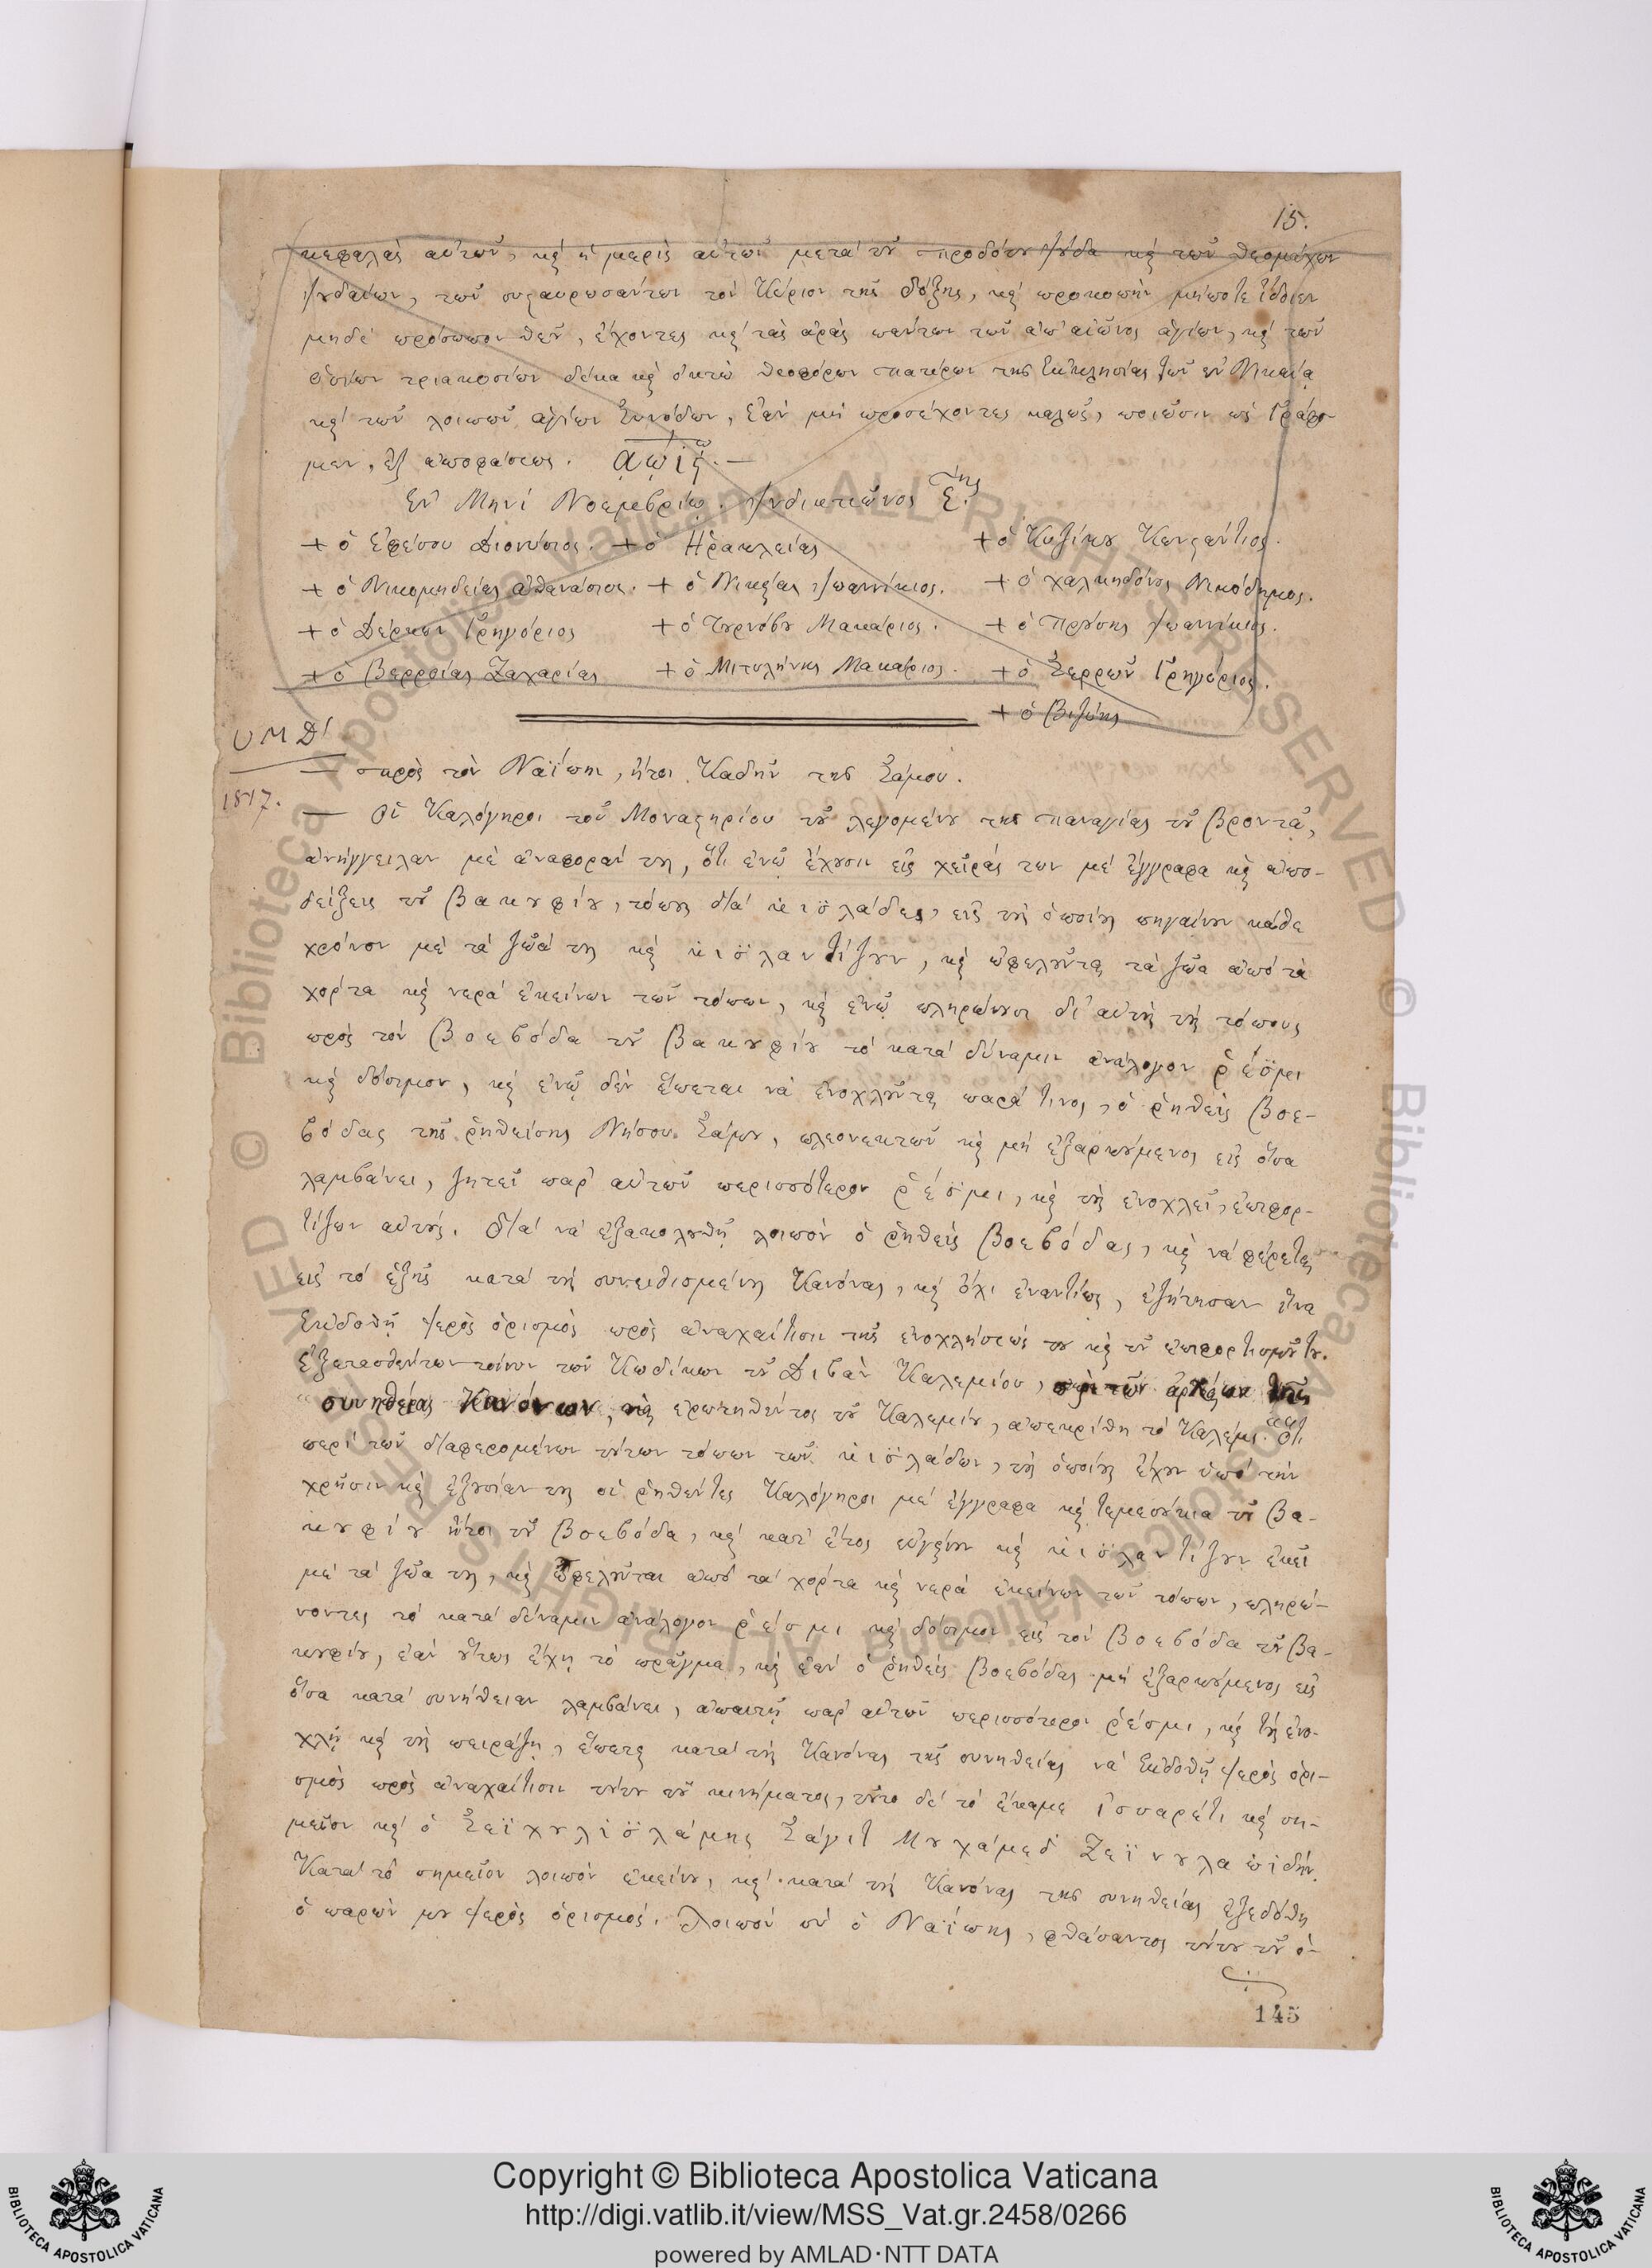 15.
κεφαλὰς αὐτῶν, καὶ ἡ μερὶς αὐτῶν μετὰ τοῦ προδότου Ἰούδα καὶ τῶν θεομάχων
Ἰουδαίων, τῶν σταυρωσάντων τὸν Κύριον τῆς δόξης, καὶ προκοπὴν μήποτε ἴδοιεν
μηδὲ πρόσωπον Θεοῦ, ἔχοντες καὶ τὰς ἀρὰς πάντων τῶν ἀπ' αἰῶνος ἁγίων, καὶ τῶν
ὁσίων τριακοσίων δέκα καὶ ὀκτὼ θεοφόρων πατέρων τῆς Ἐκκλησίας τῶν ἐν Νικαίᾳ
καὶ τῶν λοιπῶν ἁγίων Συνόδων, ἐὰν μὴ προσέχοντες καλῶς, ποιῶσιν ὡς Γράφο-
μεν, ἐξ ἀποφάσεως. αωιϛ.—
Ἐν Μηνὶ Νοεμβρίῳ. Ἰνδικτιῶνος ε.ης
+ ὁ Ἐφέσου Διονύσιος. + ὁ Ἡρακλείας + ὁ Κυζίκου Κωνσάντιος.
+ ὁ Νικομηδείας Ἀθανάσιος. + ὁ Νικαίας Ἰωαννίκιος. + ὁ Χαλκηδόνος Νικόδημος.
+ ὁ Δέρκων Γρηγόριος + ὁ Τυρνόβου Μακάριος. + ὁ Προύσης Ἰωαννίκιος.
+ ὁ Βερροίας Ζαχαρίας + ὁ Μιτυλήνης Μακάριος. + ὁ Σερρῶν Γρηγόριος.
+ ὁ Βιζύης
ΥΜΔ'
— πρὸς τὸν Ναΐπην, ἤτοι Καδῆν τῆς Σάμου.
1817.
— Οἱ Καλόγηροι τοῦ Μοναστηρίου τοῦ λεγομένου τῆς Παναγίας τοῦ Βροντᾶ,
ἀνήγγειλαν μὲ ἀναφοράν των, ὅτι ἐνῷ ἔχουσιν εἰς χεῖράς των μὲ ἔγγραφα καὶ ἀπο-
δείξεις τοῦ Βακουφίου, τόπους διὰ κισλάδες, εἰς τοὺς ὁποίους πηγαίνουν κάθε
χρόνον μὲ τὰ ζῶά των καὶ κισλαντίζουν, καὶ ὠφελοῦνται τὰ ζῶα ἀπὸ τὰ
χόρτα καὶ νερὰ ἐκείνων τῶν τόπων, καὶ ἐνῷ πληρώνουσι δι' αὐτοὺς τοὺς τόπους
πρὸς τὸν Βοεβόδα τοῦ Βακουφίου τὸ κατὰ δύναμιν ἀνάλογον ῥέσμι
καὶ δόσιμον, καὶ ἐνῷ δὲν ἕπεται νὰ ἐνοχλοῦνται παρά τινος, ὁ ῥηθεὶς Βοε-
βόδας τῆς ῥηθείσης Νήσου Σάμου, πλεονεκτῶν καὶ μὴ ἐξαρκούμενος εἰς ὅσα
λαμβάνει, ζητεῖ παρ' αὐτῶν περισσότερον ῥέσμι, καὶ τοὺς ἐνοχλεῖ, ἐπιφορ-
τίζων αὐτούς. Διὰ νὰ ἐξακολουθῇ λοιπὸν ὁ ῥηθεὶς Βοεβόδας, καὶ νὰ φέρεται
εἰς τὸ ἑξῆς κατὰ τοὺς συνειθισμένους Κανόνας, καὶ ὄχι ἐναντίως, ἐζήτησαν ἵνα
ἐκδοθῇ ἱερὸς ὁρισμὸς πρὸς ἀναχαίτισιν τῆς ἐνοχλήσεώς του καὶ τοῦ ἐπιφορτισμοῦ του.
Ἐξετασθέντων τοίνυν τῶν Κωδίκων τοῦ Διβὰν Καλεμίου, ἀρχαίων τῆς
συνηθείας Κανόνων, καὶ ἐρωτηθέντος τοῦ Καλεμίου, ἀπεκρίθη τὸ Καλέμι ὅτι
περὶ τῶν διαφερομένων τούτων τόπων τῶν κισλάδων, τοὺς ὁποίους ἔχουν ὑπὸ τὴν
χρῆσιν καὶ ἐξουσίαν των οἱ ῥηθέντες Καλόγηροι μὲ ἔγγραφα καὶ τεμεσούκια τοῦ Βα-
κουφίου ἤτοι τοῦ Βοεβόδα, καὶ κατ' ἔτος εὐγαίνουν καὶ κισλαντίζουν ἐκεῖ
μὲ τὰ ζῶά των, καὶ ὠφελοῦνται ἀπὸ τὰ χόρτα καὶ νερὰ ἐκείνων τῶν τόπων, πληρώ-
νοντες τὸ κατὰ δύναμιν ἀνάλογον ῥέσμι καὶ δόσιμον εἰς τὸν Βοεβόδα τοῦ Βα-
κουφίου, ἐὰν οὕτως ἔχῃ τὸ πρᾶγμα, καὶ ἐὰν ὁ ῥηθεὶς Βοεβόδας μὴ ἐξαρκούμενος εἰς
ὅσα κατὰ συνήθειαν λαμβάνει, ἀπαιτῇ παρ' αὐτῶν περισσότερον ῥέσμι, καὶ τοὺς ἐνο-
χλῇ καὶ τοὺς πειράζῃ, ἕπεται κατὰ τοὺς Κανόνας τῆς συνηθείας νὰ ἐκδοθῇ ἱερὸς ὁρι-
σμὸς πρὸς ἀναχαίτισιν τούτου τοῦ κινήματος, τοῦτο δὲ τὸ ἔκαμε ἰσσαρέτι καὶ ση-
μεῖον καὶ ὁ Σεϊχουλισλάμης Σάγιτ Μουχάμεδ Ζεϊνουλα
Κατὰ τὸ σημεῖον λοιπὸν ἐκείνου, καὶ κατὰ τοὺς Κανόνας τῆς συνηθείας ἐξεδόθη
ὁ παρών μου ἱερὸς ὁρισμός. Λοιπὸν σὺ ὁ Ναΐπης, φθάσαντος τούτου τοῦ ὁ-
145
Copyright © Biblioteca Apostolica Vaticana
http://digi.vatlib.it/view/MSS_Vat.gr.2458/0266
powered by AMLAD·NTT DATA